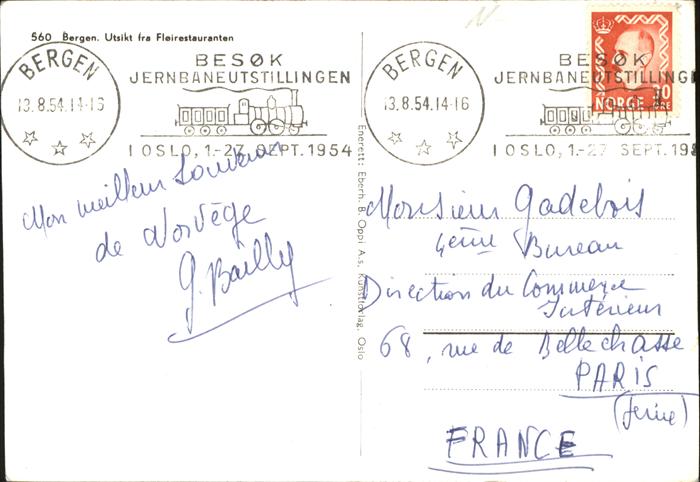 560 Bergen. Utsikt fra Fløirestauranten
BERGEN
13.8.54.14-16
BESØK
JERNBANEUTSTILLINGEN
I OSLO, 1.-27. SEPT. 1954
BERGEN
13.8.54.14-16
BESØK
JERNBANEUTSTILLINGEN
I OSLO, 1.-27. SEPT. 195
NORGE
Mon meilleur souvenir
de Norvège
G. Bailly
Enerett: Eberh. B. Oppi A.s, Kunstforlag, Oslo
Monsieur Gadebois
4ème Bureau
Direction du Commerce
Intérieur
68, rue de Bellechasse
PARIS
(Seine)
FRANCE